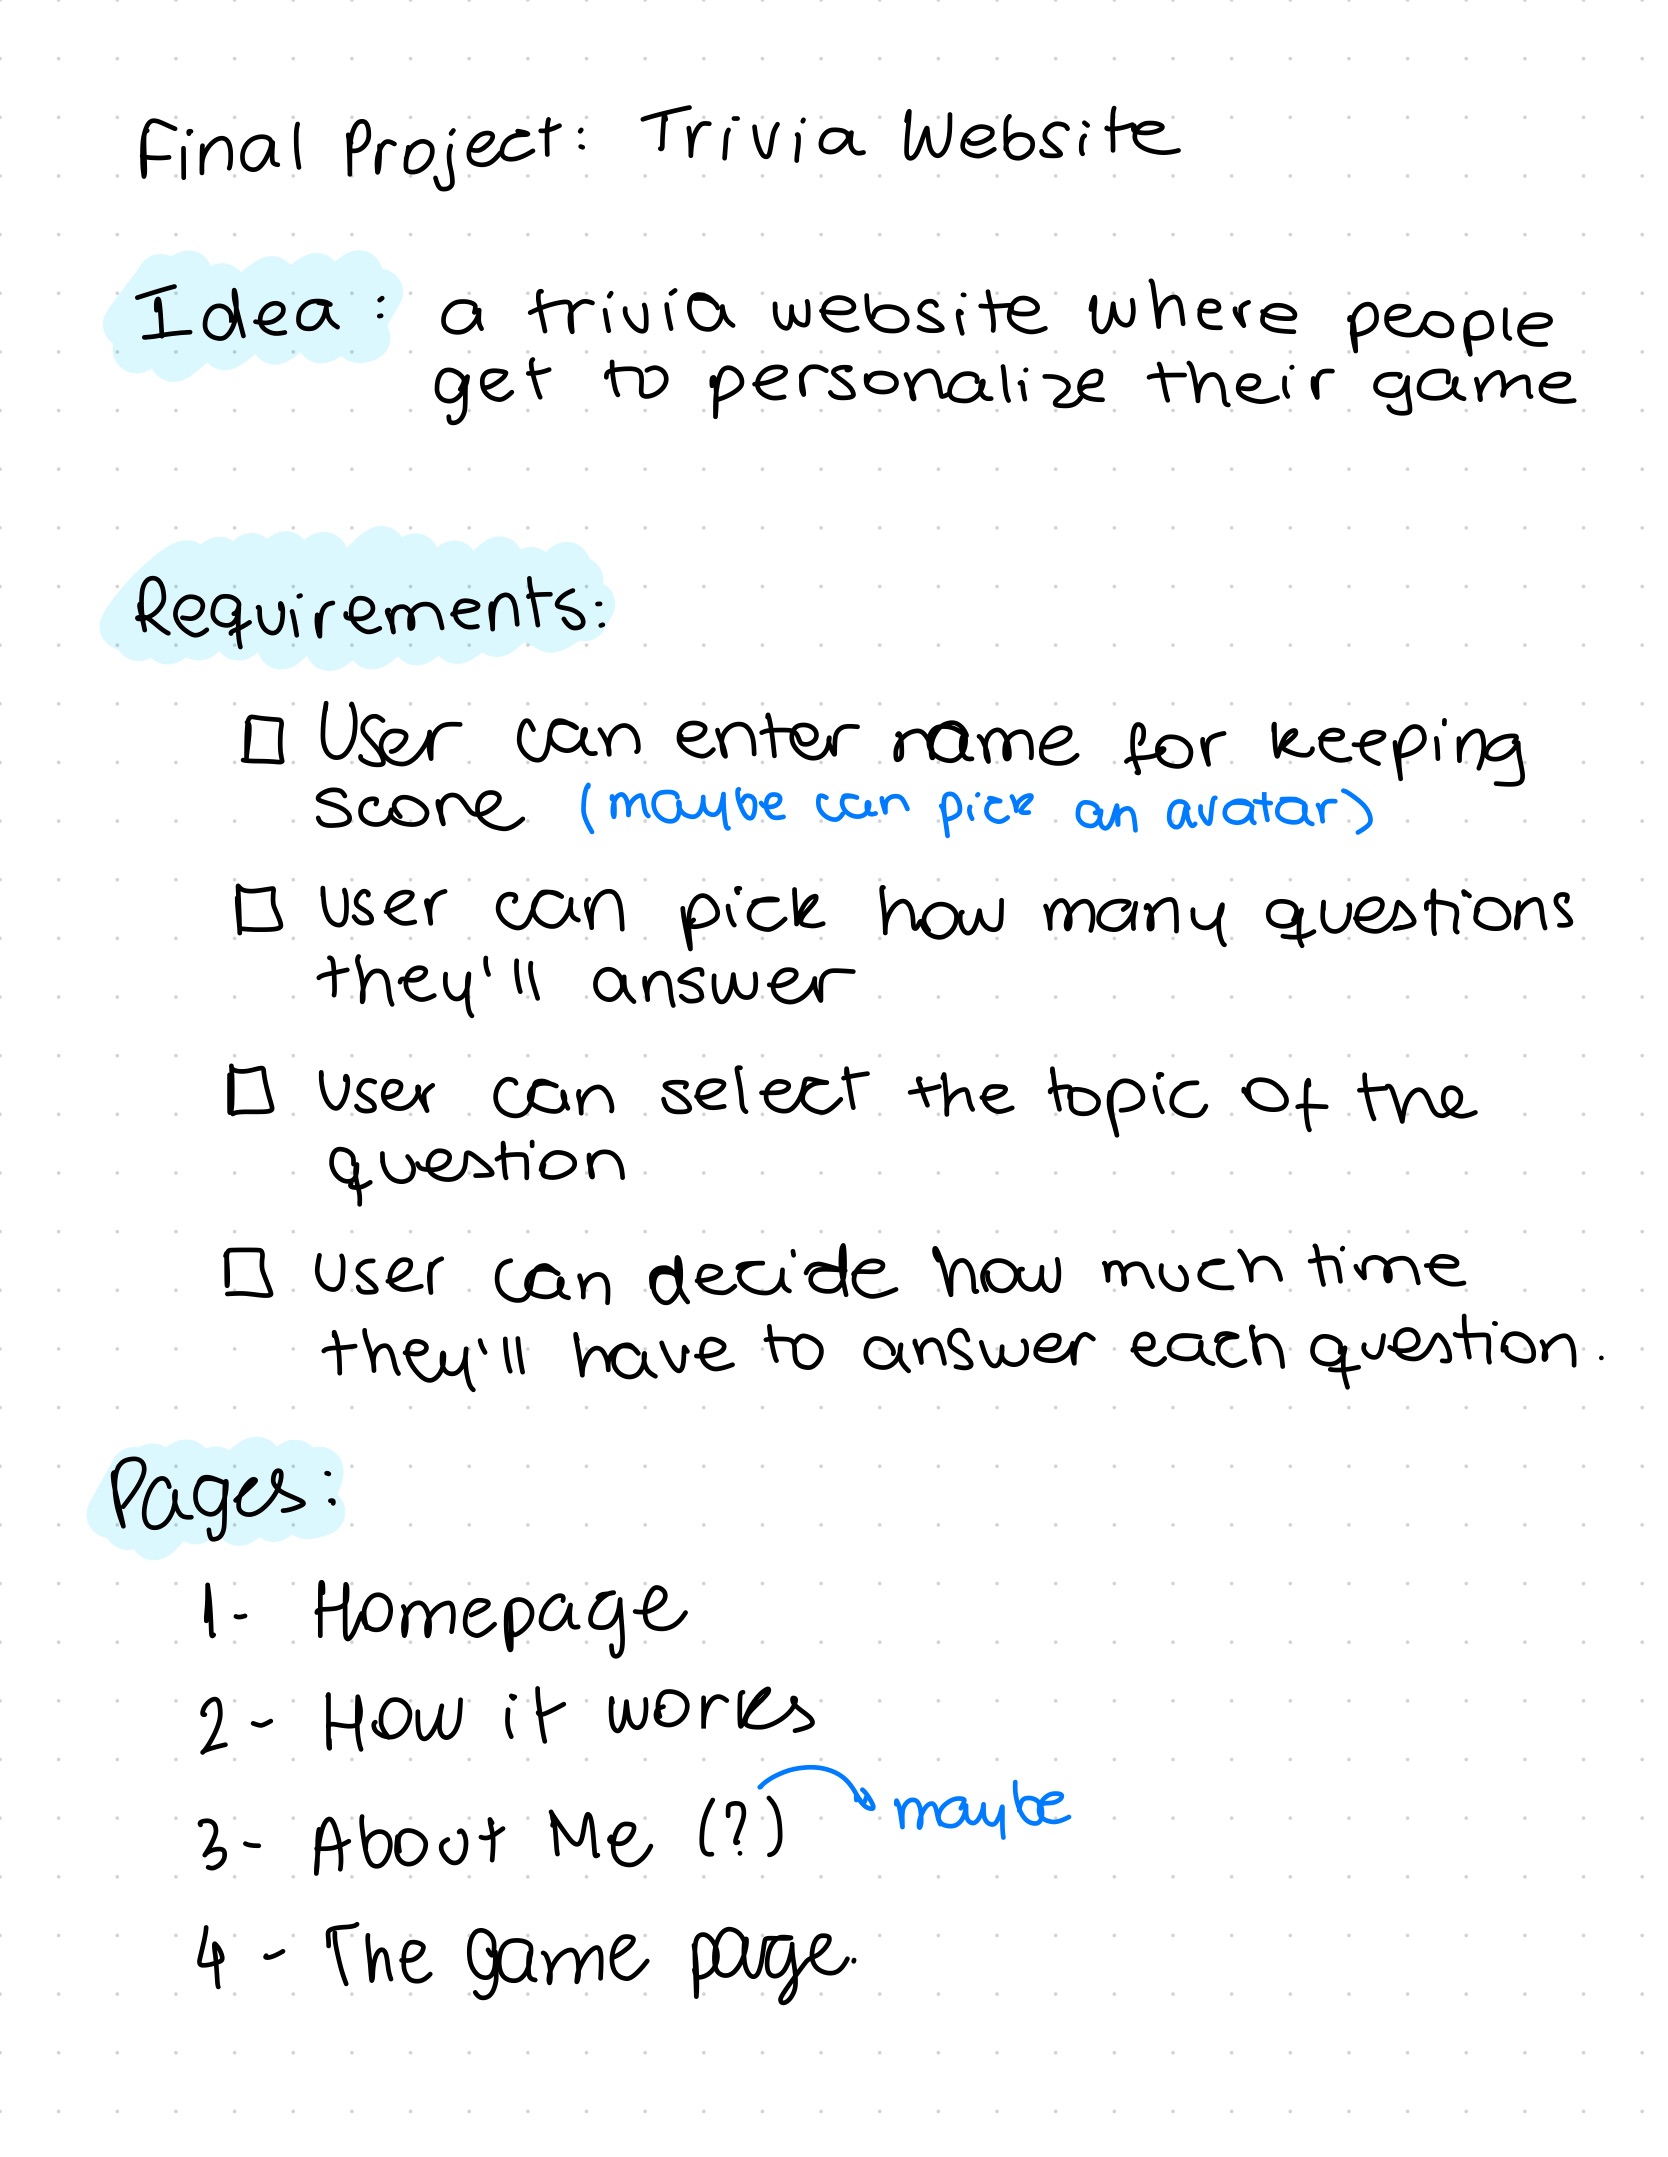 Final Project: Trivia Website
Idea: a trivia website where people
get to personalize their game
Requirements:
☐ User can enter name for keeping
score (maybe can pick an avatar)
☐ user can pick how many questions
they'll answer
☐ user can select the topic of the
question
☐ user can decide how much time
they'll have to answer each question.
Pages:
1- Homepage
2- How it works
3- About Me (?) maybe
4- The game page.